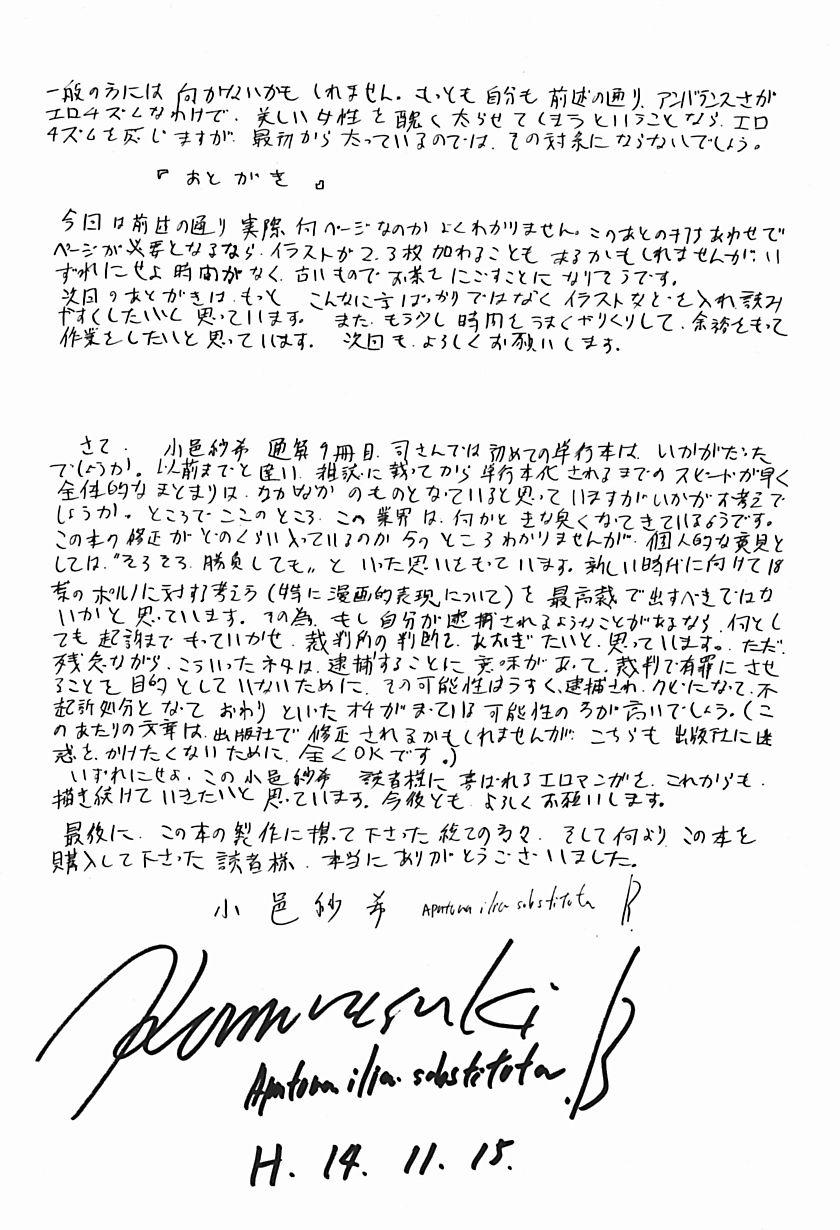 一般の方には 何かないかも しれません。もっとも 自分も 前述の通り、アンバランスさが
エロチズムなわけで、美しい女性を 醜く 太らせて しまう ということなら、エロ
チズムを 感じますが、最初から 太っているのでは、その対象に ならないでしょう。
『 あとがき 』
今回は前述の通り 実際、何ページなのか よくわかりません。このあとの打ちあわせで
ページが必要となるなら、イラストが 2、3枚 加わることも あるかもしれませんが、い
ずれにせよ 時間がなく、古いもので お茶を にごすことに なりそうです。
次回のあとがきは、もっと こんなに字ばっかりではなく イラストなどを入れ、読み
やすくしたいと 思っています。 また、もう少し 時間を うまくやりくりして、余裕をもって
作業をしたいと 思っています。 次回も、よろしく お願いします。
さて、 小邑紗希 通算9冊目、司さんでは 初めての単行本は、いかがだった
でしょうか。以前までと違い、雑誌に載ってから 単行本化されるまでの スピードが早く
全体的な まとまりは、なかなか のものとなっていると思って いますがいかがお考えで
しょうか。ところで ここのところ、この業界は、何かと きな臭くなってきているようです。
この本の修正が どのくらい入っているのか 今の ところ わかりませんが、個人的な意見と
しては、“そろそろ、勝負しても〟と いった思いをもって います。新しい時代に向けて 18
禁のポルノに対する考え方(特に漫画的表現について)を 最高裁で出すべきではな
いかと 思っています。その為、もし自分が逮捕されるようなことがあるなら、何とし
ても 起訴まで もっていかせ、裁判所の判断を、あおぎたいと、思っています。ただ、
残念ながら、こういったネタは、逮捕することに 意味が あって、裁判で有罪に させ
ることを 目的として いないために、その可能性はうすく、逮捕され、クビになって、不
起訴処分と なって おわり といった オチがまっている 可能性の方が高いでしょう。(こ
のあたりの文章は、出版社で 修正されるかもしれませんが、こちらも 出版社に迷
惑を、かけたくないために、全くOKです。)
いずれにせよ、この小邑紗希 読者様に 喜ばれるエロマンガを、これからも、
描き続けて いきたいと 思っています。今後とも、よろしくお願いします。
最後に、この本の製作に携って下さった 総ての方々、そして何より、この本を
購入して下さった 読者様、本当に ありがとうございました。
小 邑 紗 希 Apatura ilia substituta B
Komurasaki B
Apatura ilia substituta
H. 14. 11. 15.